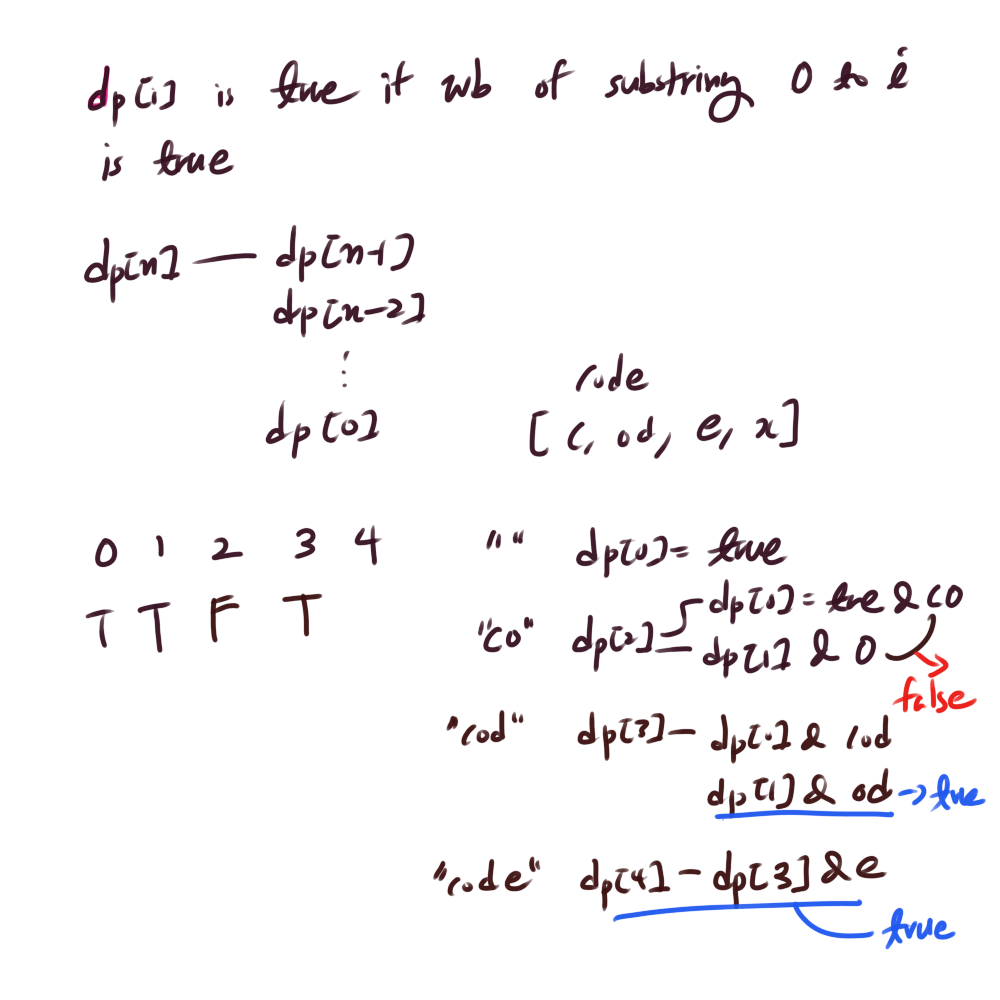 dp[i] is true if wb of substring 0 to i
is true
dp[n] — dp[n-1]
dp[n-2]
⋮
dp[0]
code
[ c, od, e, x ]
0 1 2 3 4
T T F T
" " dp[0] = true
"co" dp[2] dp[0] = true & co
dp[1] & o
false
"cod" dp[3] — dp[0] & cod
dp[1] & od → true
"code" dp[4] — dp[3] & e
true